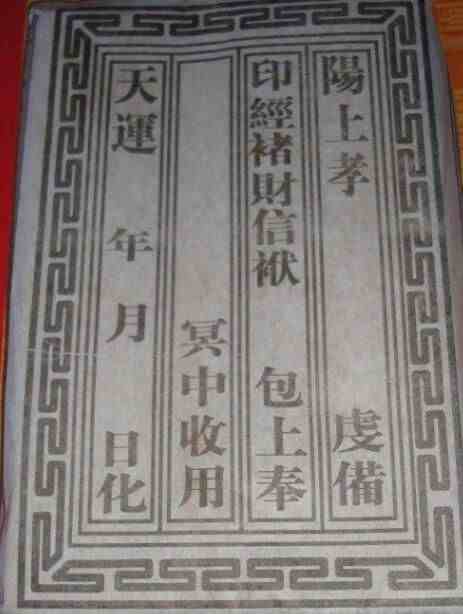 陽上孝 虔備
印經褚財信袱 包上奉
冥中收用
天運 年 月 日化